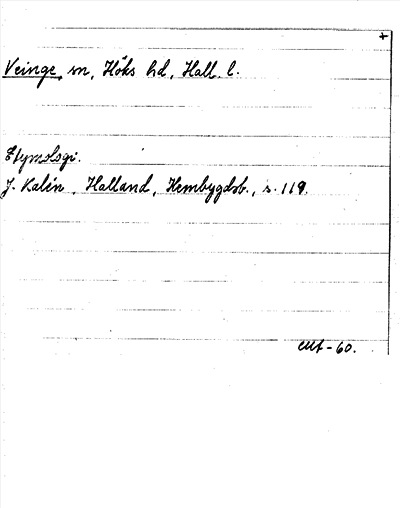 +
Veinge sn, Höks hd, Hall. l.
Etymologi.
J. Kalén, Halland, Hembygdsb., s. 119.
-60.